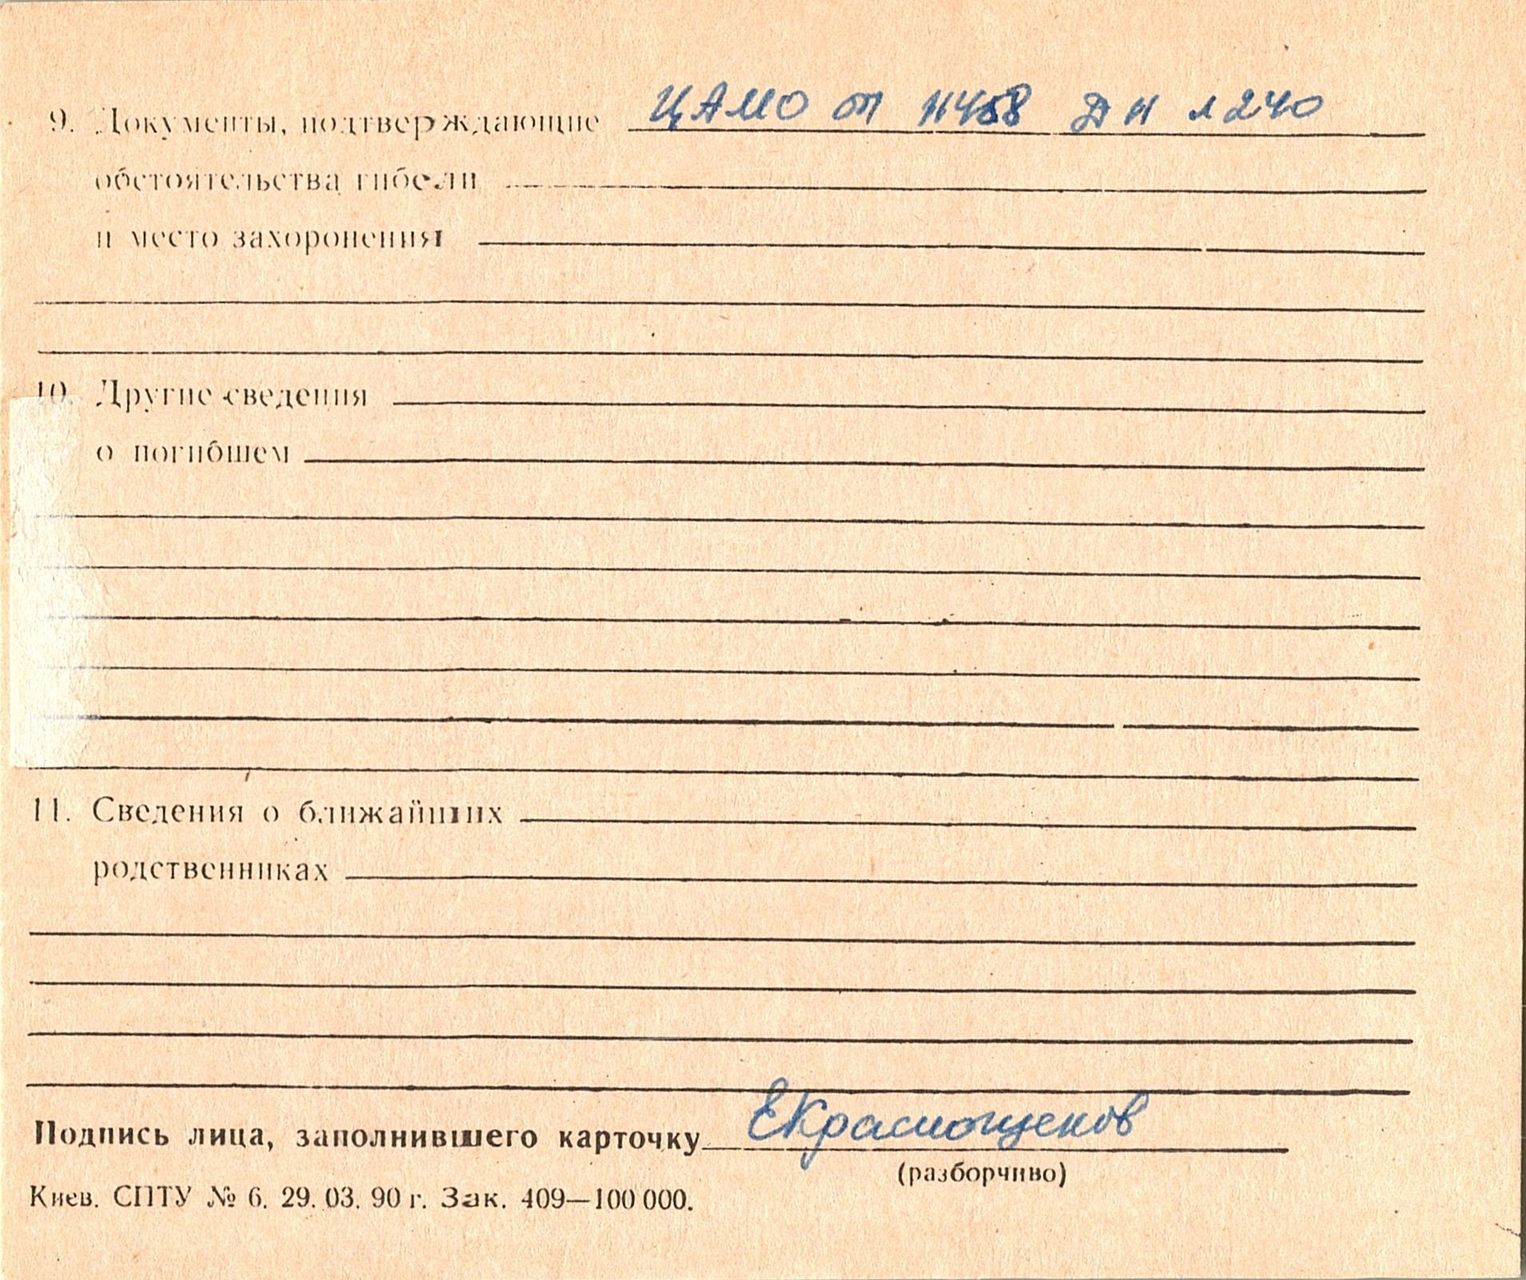 9. Документы, подтверждающие ЦАМО оп 11458 Д 11 л 240
обстоятельства гибели
и место захоронения
10. Другие сведения
о погибшем
11. Сведения о ближайших
родственниках
Подпись лица, заполнившего карточку ЕКраснощеков
(разборчиво)
Киев. СПТУ № 6. 29. 03. 90 г. Зак. 409—100 000.